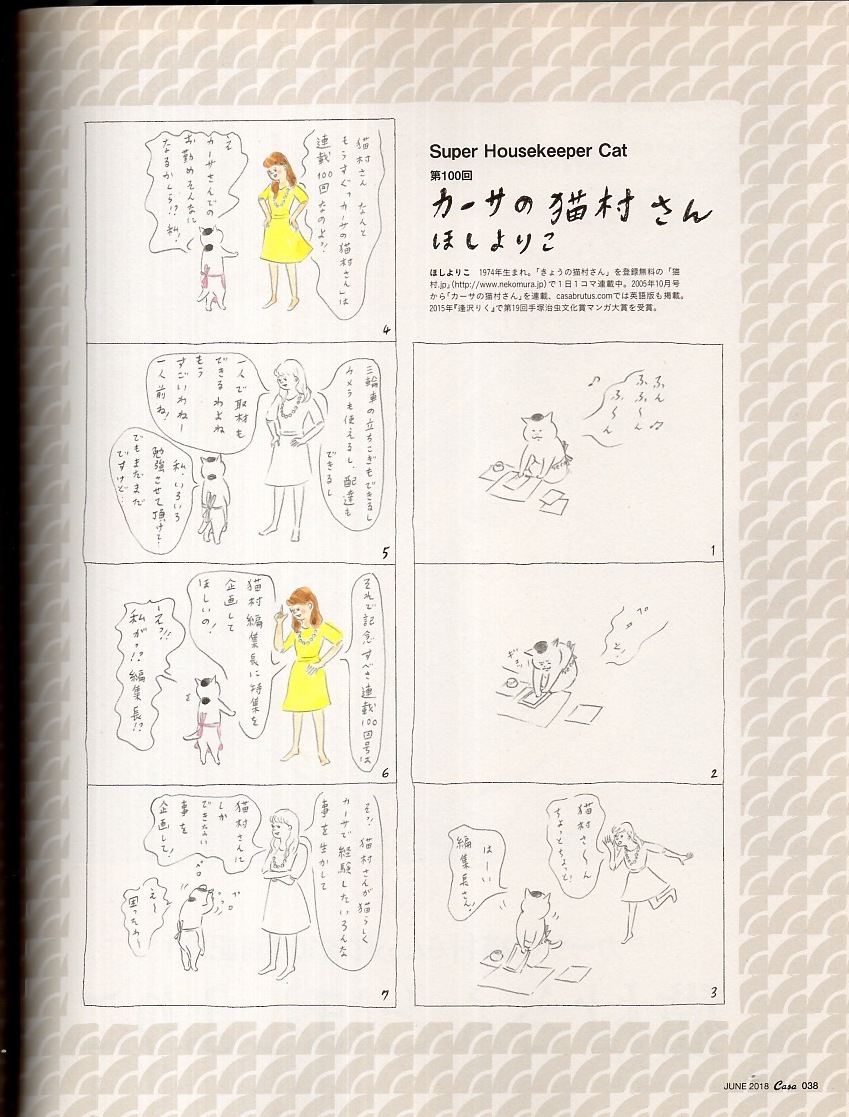 Super Housekeeper Cat
第100回
カーサの猫村さん
ほしよりこ
ほしよりこ 1974年生まれ。「きょうの猫村さん」を登録無料の「猫
村.jp」(http://www.nekomura.jp)で1日1コマ連載中。2005年10月号
から「カーサの猫村さん」を連載、casabrutus.comでは英語版も掲載。
2015年『逢沢りく』で第19回手塚治虫文化賞マンガ大賞を受賞。
ふん♫
ふふ〜ん
ふ〜ん
♪
1
ペ
タ
ッ
と
ギュッ
2
猫村さ〜ん
ちょっとちょっと!
はーい
編集長さん!
3
猫村さん なんと
もうすぐ「カーサの猫村さん」は
連載100回なのよ!
え
カーサさんでの
お勤めそんなに
なるかしら!?私!
4
三輪車の立ちこぎもできるし
カメラも使えるし、配達も
できるし
一人で取材も
できるわよね
もう
すごいわねー
一人前ね!
私、いろいろ
勉強させて頂けて、
でもまだまだ
ですけど…
5
それで記念すべき連載100回号は
猫村編集長に特集を
企画して
ほしいの!
えっ!!
私がっ!?編集長!?
6
そっ!猫村さんが猫らしく
カーサで経験したいろんな
事を生かして
猫村さんに
しか
できない
事を
企画して!
え〜
困ったわ〜
7
JUNE 2018 Casa 038